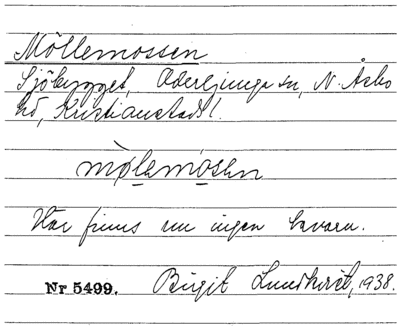 Möllemossen
Sjöbygget, Oderljunga sn, N. Åsbo
hd, Kristianstads l.
mòlemosen
Här finns nu ingen kvarn.
Nr 5499. Birgit Lundkvist, 1938.